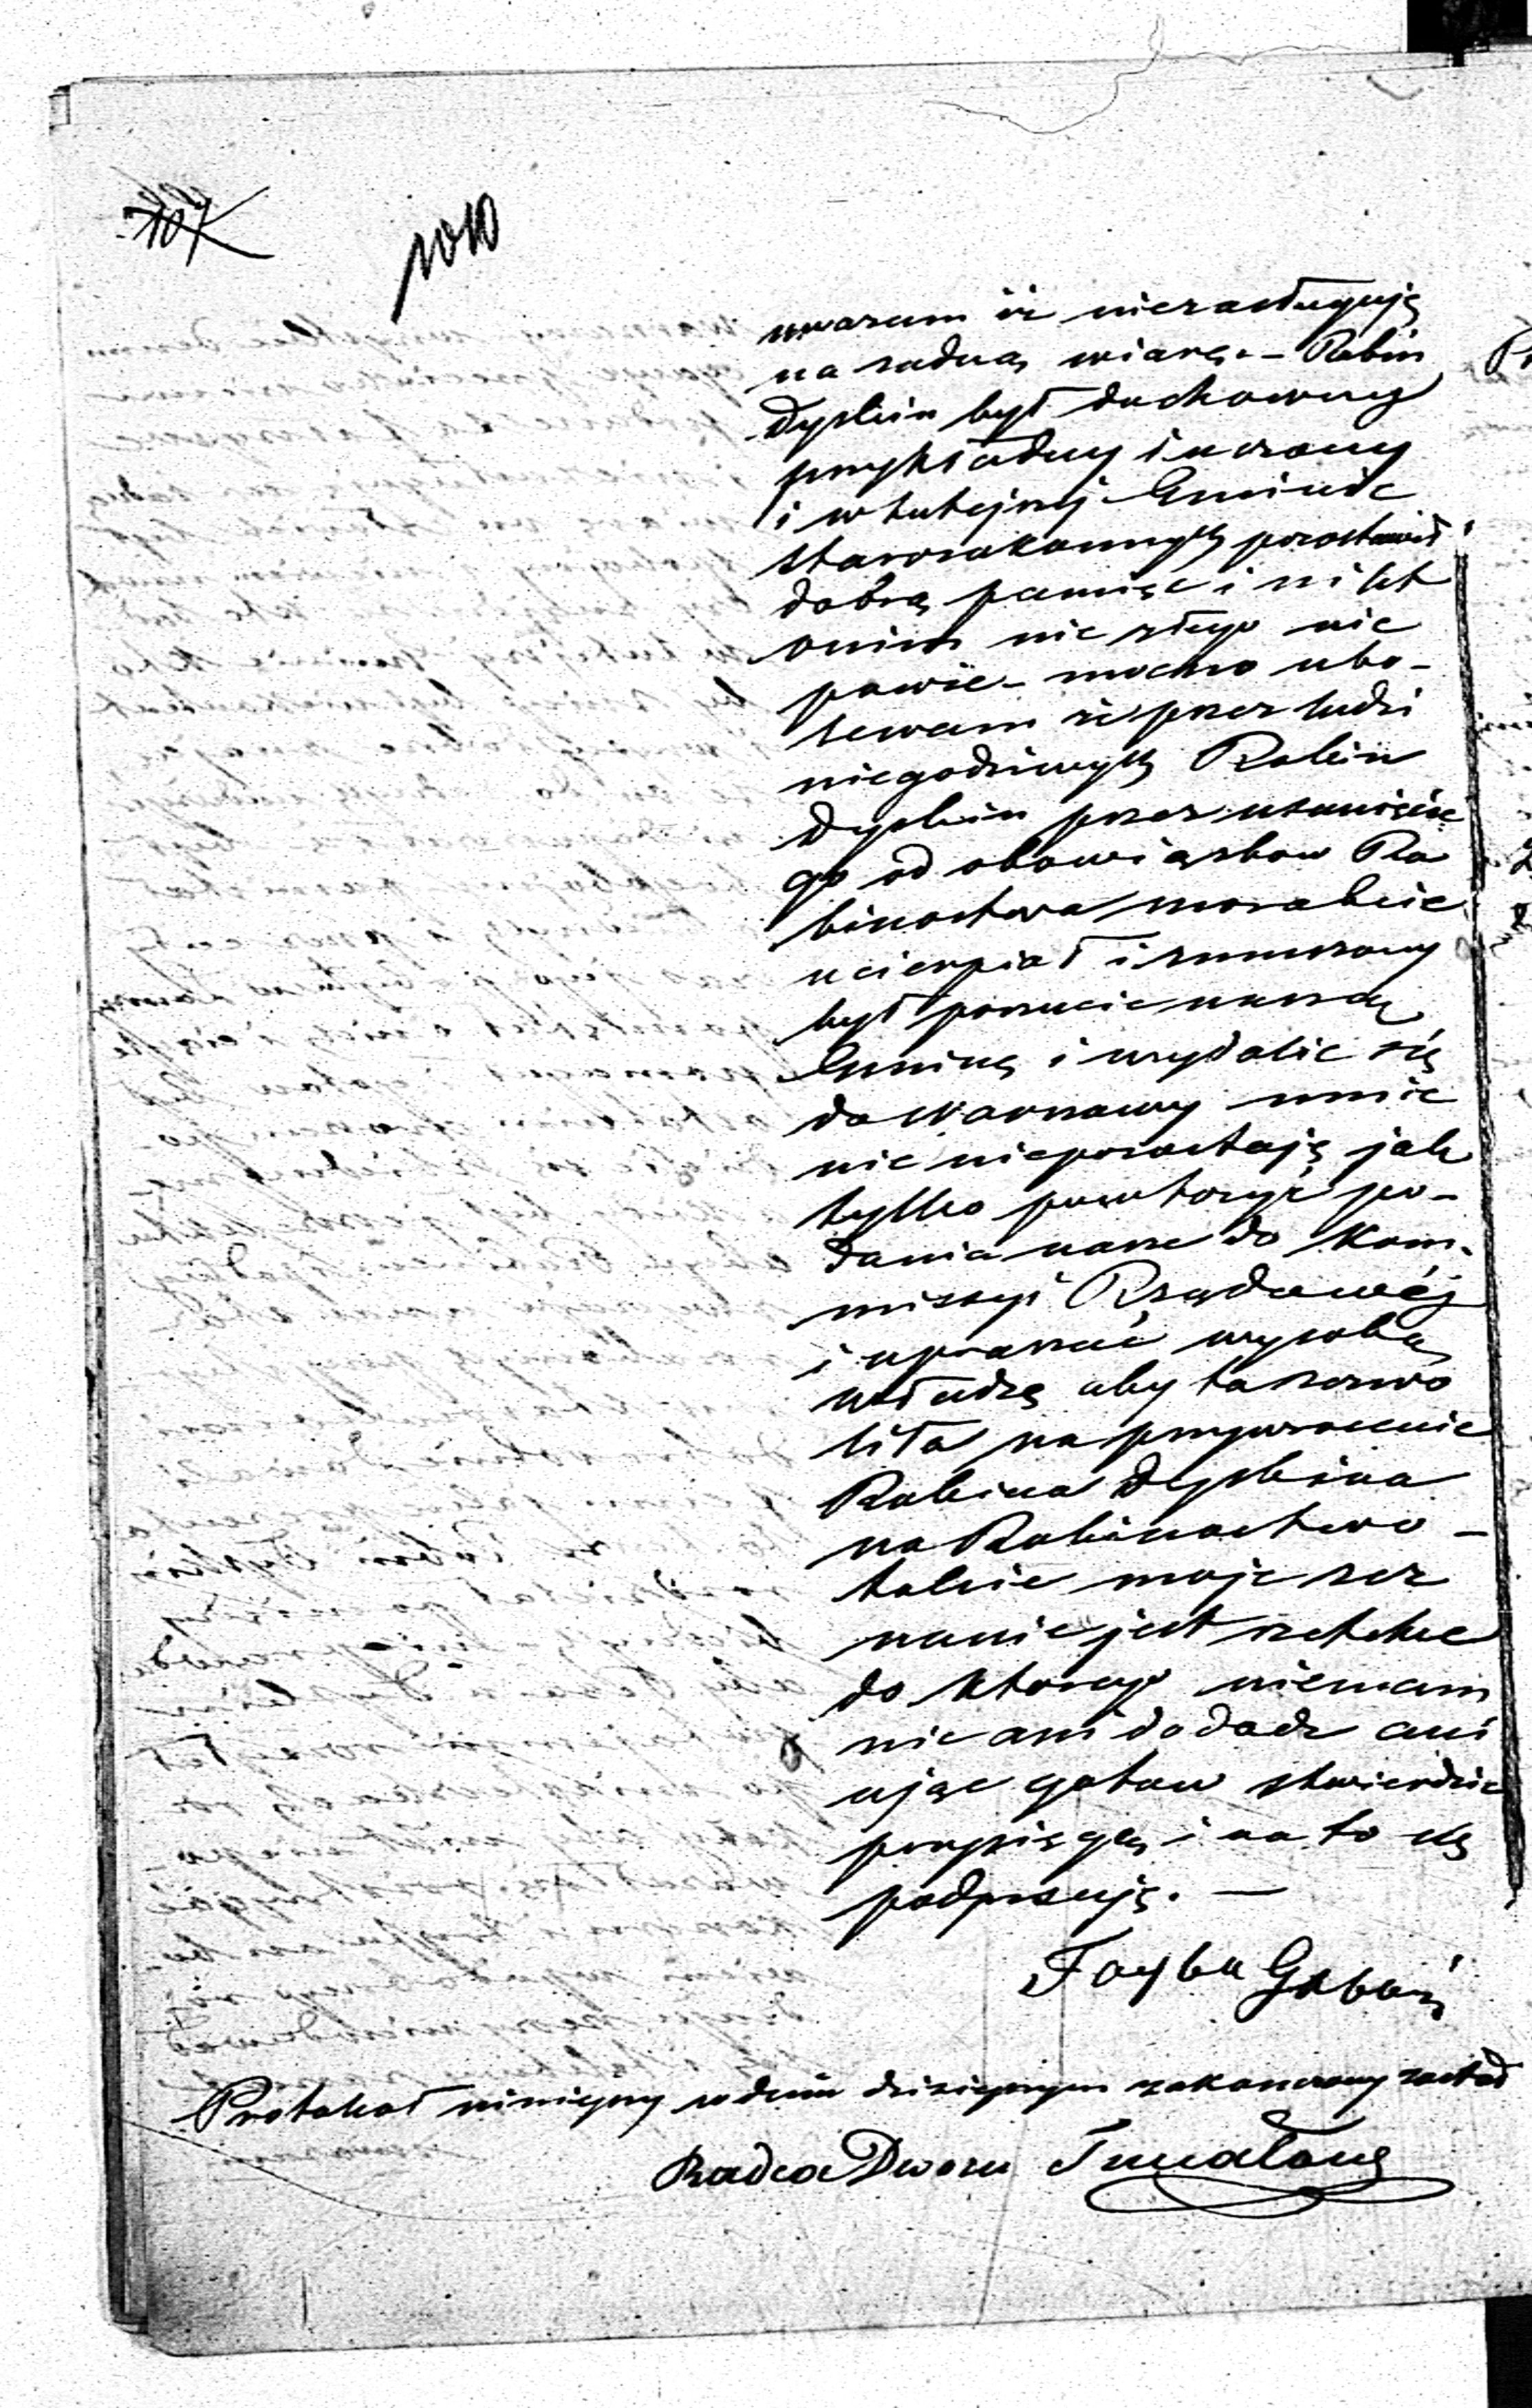 107
1010
uwazam iż niezasługują
na żadną wiarę. – Rabin
Dyskin był duchowny
przykładny i uczony
i w tutejszej Gminie
starozakonnych pozostawił
dobrą pamięć i nikt
o nim nic złego nie
powie – mocno ubo-
lewam że przez ludzi
niegodziwych Rabin
Dyskin przez usunięcie
go od obowiązkow Ra
binostwa moralnie
ucierpiał i zmuszony
był porzucić naszą
Gminę i wydalić się
do Warszawy mnie
nic niepozostaję jak
tylko powtorzyć po-
dania nasze do Kom-
missyi Rządowéj
i upraszać wysoką
władzę aby ta zezwo
liła na przywrocenie
Rabina Dyskina
na Rabinostwo –
takie moje zez
nanie jest rzetelne
do ktorego niemam
nic ani dodadz ani
ująć gotow stwierdzić
przysięgą i na to się
podpisuję. —
Protokoł niniejszy w dniu dzisiejszym zakonczony został
Radca Dworu